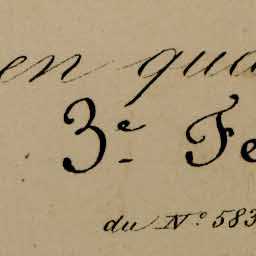 en qua
3e Fe
du No 583